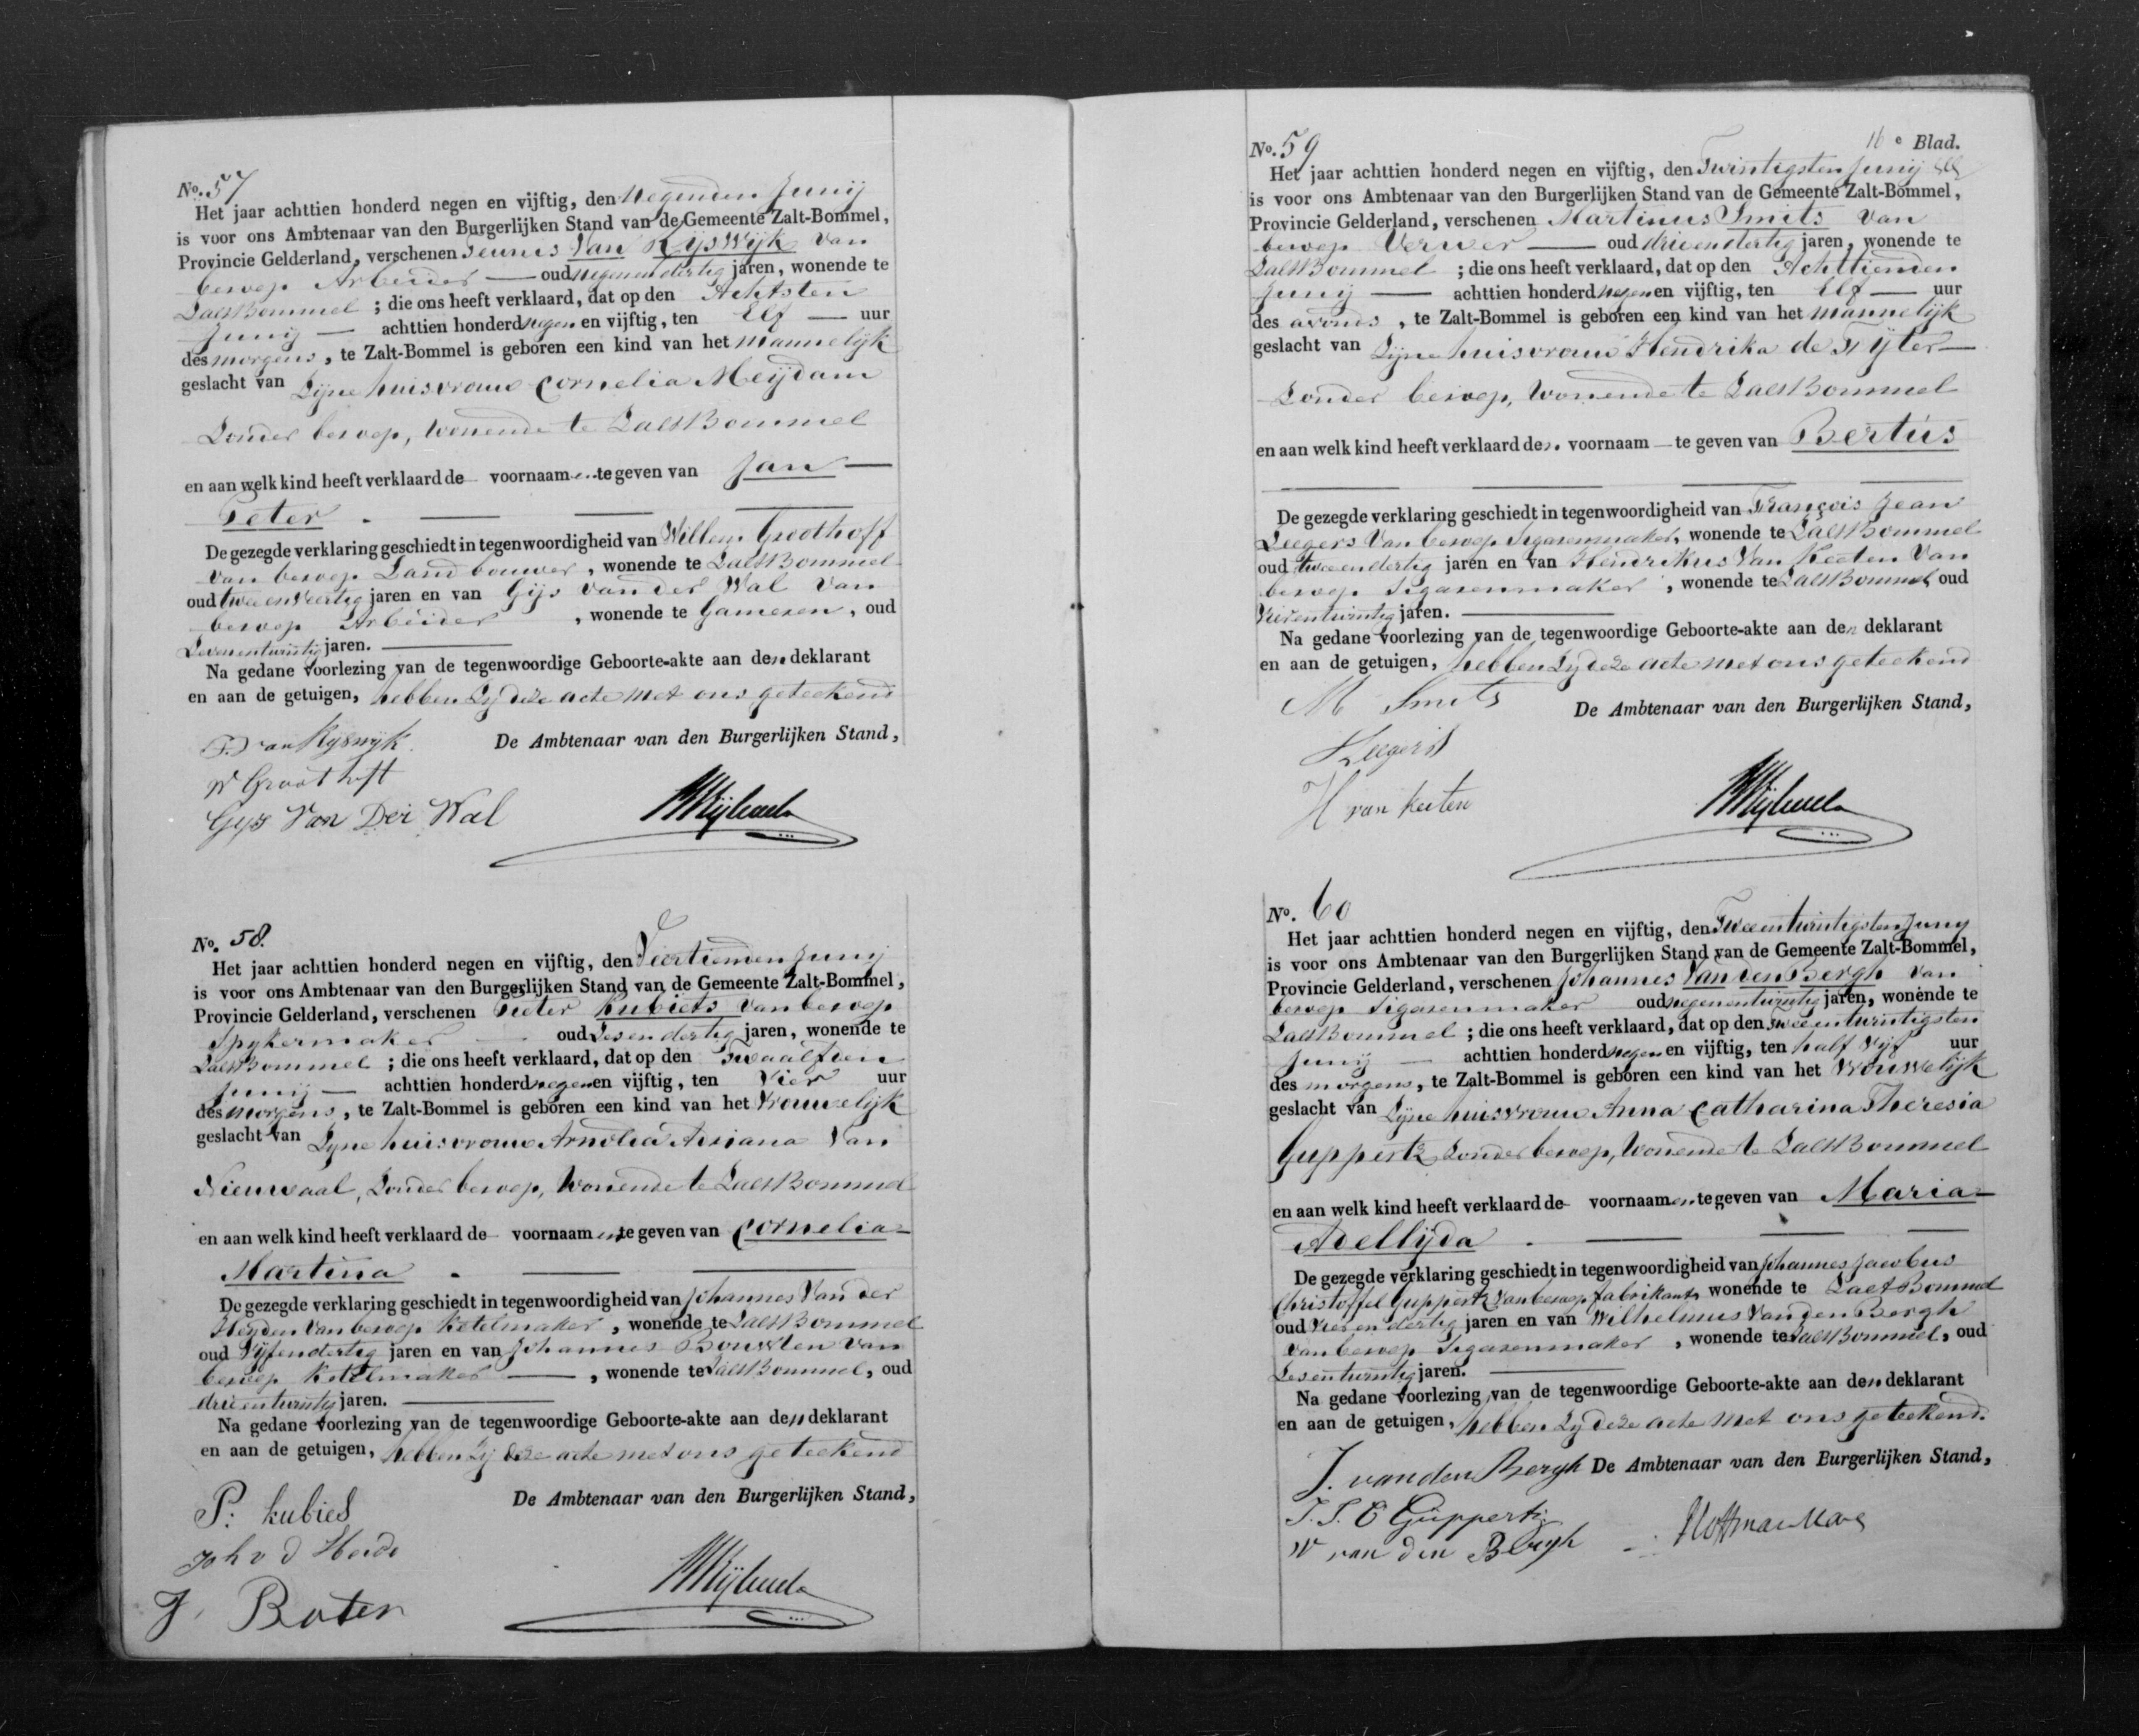 No. 57
Het jaar achttien honderd negen en vijftig, den Negenden Junij
is voor ons Ambtenaar van den Burgerlijken Stand van de Gemeente Zalt-Bommel,
Provincie Gelderland, verschenen Teunis Van Rijswijk van
beroep Arbeider oud negenendertig jaren, wonende te
ZaltBommel ; die ons heeft verklaard, dat op den Achtsten
Junij achttien honderd negen en vijftig, ten Elf uur
des morgens, te Zalt-Bommel is geboren een kind van het mannelijk
geslacht van Zijne huisvrouw Cornelia Meijdam
Zonder beroep, wonende te ZaltBommel
en aan welk kind heeft verklaard de voornaamen te geven van Jan
Peter.
De gezegde verklaring geschiedt in tegenwoordigheid van Willem Groothoff
van beroep Landbouwer, wonende te ZaltBommel
oud tweeenveertig jaren en van Gijs van der Wal van
beroep Arbeider, wonende te Gameren, oud
Zevenentwintig jaren.
Na gedane voorlezing van de tegenwoordige Geboorte-akte aan den deklarant
en aan de getuigen, hebben Zij deze acte met ons geteekend
T. van Rijswijk. De Ambtenaar van den Burgerlijken Stand,
W Groothoff
Gijs Van Der Wal
No. 58.
Het jaar achttien honderd negen en vijftig, den Veertienden Junij
is voor ons Ambtenaar van den Burgerlijken Stand van de Gemeente Zalt-Bommel,
Provincie Gelderland, verschenen Pieter Kubiets van beroep
Spijkermaker oud Zesendertig jaren, wonende te
ZaltBommel ; die ons heeft verklaard, dat op den Twaalfden
Junij achttien honderd negen en vijftig, ten Vier uur
des morgens, te Zalt-Bommel is geboren een kind van het Vrouwelijk
geslacht van Zijne huisvrouw Arnolia Adriana Van
Nieuwaal, Zonder beroep, Wonende te ZaltBommel
en aan welk kind heeft verklaard de voornaamen te geven van Cornelia
Martina.
De gezegde verklaring geschiedt in tegenwoordigheid van Johannes Van der
Heijden van beroep Ketelmaker, wonende te ZaltBommel
oud Vijfendertig jaren en van Johannes Bouwten van
beroep Ketelmaker, wonende te ZaltBommel, oud
drieentwintig jaren.
Na gedane voorlezing van de tegenwoordige Geboorte-akte aan den deklarant
en aan de getuigen, hebben Zij deze acte met ons geteekend
P. kubies De Ambtenaar van den Burgerlijken Stand,
Joh v d Heide
J Boten
16e Blad.
No. 59
Het jaar achttien honderd negen en vijftig, den Twintigsten Junij
is voor ons Ambtenaar van den Burgerlijken Stand van de Gemeente Zalt-Bommel,
Provincie Gelderland, verschenen Martinus Smits van
beroep Verwer oud drieendertig jaren, wonende te
ZaltBommel ; die ons heeft verklaard, dat op den Achttienden
Junij achttien honderd negen en vijftig, ten Elf uur
des avonds, te Zalt-Bommel is geboren een kind van het mannelijk
geslacht van Zijne huisvrouw Hendrika de Fijter
Zonder beroep, Wonende te ZaltBommel
en aan welk kind heeft verklaard den voornaam te geven van Bertus
De gezegde verklaring geschiedt in tegenwoordigheid van François Jean
Zeegers Van beroep Sigarenmaker, wonende te ZaltBommel
oud tweeendertig jaren en van Hendrikus Van Keeten Van
beroep Sigarenmaker, wonende te ZaltBommel, oud
Vierentwintig jaren.
Na gedane voorlezing van de tegenwoordige Geboorte-akte aan den deklarant
en aan de getuigen, hebben Zij deze acte met ons geteekend
M Smits De Ambtenaar van den Burgerlijken Stand,
H van Keeten
No. 60
Het jaar achttien honderd negen en vijftig, den Tweeentwintigsten Junij
is voor ons Ambtenaar van den Burgerlijken Stand van de Gemeente Zalt-Bommel,
Provincie Gelderland, verschenen Johannes Van den Bergh van
beroep Sigarenmaker oud negenentwintig jaren, wonende te
ZaltBommel ; die ons heeft verklaard, dat op den Tweeentwintigsten
Junij achttien honderd negen en vijftig, ten half Vijf uur
des morgens, te Zalt-Bommel is geboren een kind van het Vrouwelijk
geslacht van Zijne huisvrouw Anna Catharina Theresia
Guppertz Zonder beroep, Wonende te ZaltBommel
en aan welk kind heeft verklaard de voornaamen te geven van Maria
Adellijda.
De gezegde verklaring geschiedt in tegenwoordigheid van Johannes Jacobus
Christoffel Guppertz van beroep fabrikant, wonende te ZaltBommel
oud Vierendertig jaren en van Wilhelmus Van den Bergh
van beroep Sigarenmaker, wonende te ZaltBommel, oud
Zesentwintig jaren.
Na gedane voorlezing van de tegenwoordige Geboorte-akte aan den deklarant
en aan de getuigen, hebben Zij deze acte met ons geteekend.
J. van den Bergh De Ambtenaar van den Burgerlijken Stand,
Guppertz
W van den Bergh